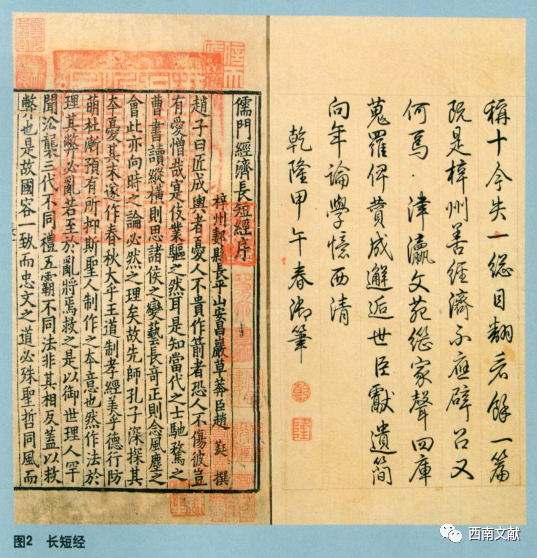 稱十今失一總目翻看餘一篇
既是梓州善經濟不應辟召又
何焉.津瀛文苑總家聲四庫
蒐羅俾贊成邂逅世臣獻遺簡
向年論學憶西清
乾隆甲午春御筆
乾
隆
儒門經濟長短經序
梓州郪縣長平山安昌巖草莽臣趙 蕤 撰
趙子曰匠成輿者憂人不貴作箭者恐人不傷彼豈
有愛憎哉寔伎業驅之然耳是知當代之士馳騖之
曹書讀縱橫則思諸侯之變藝長奇正則念風塵之
會此亦向時之論必然之理矣故先師孔子深探其
本憂其末遂作春秋大乎王道制孝經美乎德行防
萌杜漸預有所抑斯聖人制作之本意也然作法於
理其弊必亂若至於亂將焉救之是以御世理人罕
聞沿襲三代不同禮五霸不同法非其相反蓋以救
弊也是故國容一致而忠文之道必殊聖哲同風而
图2 长短经
西南文献